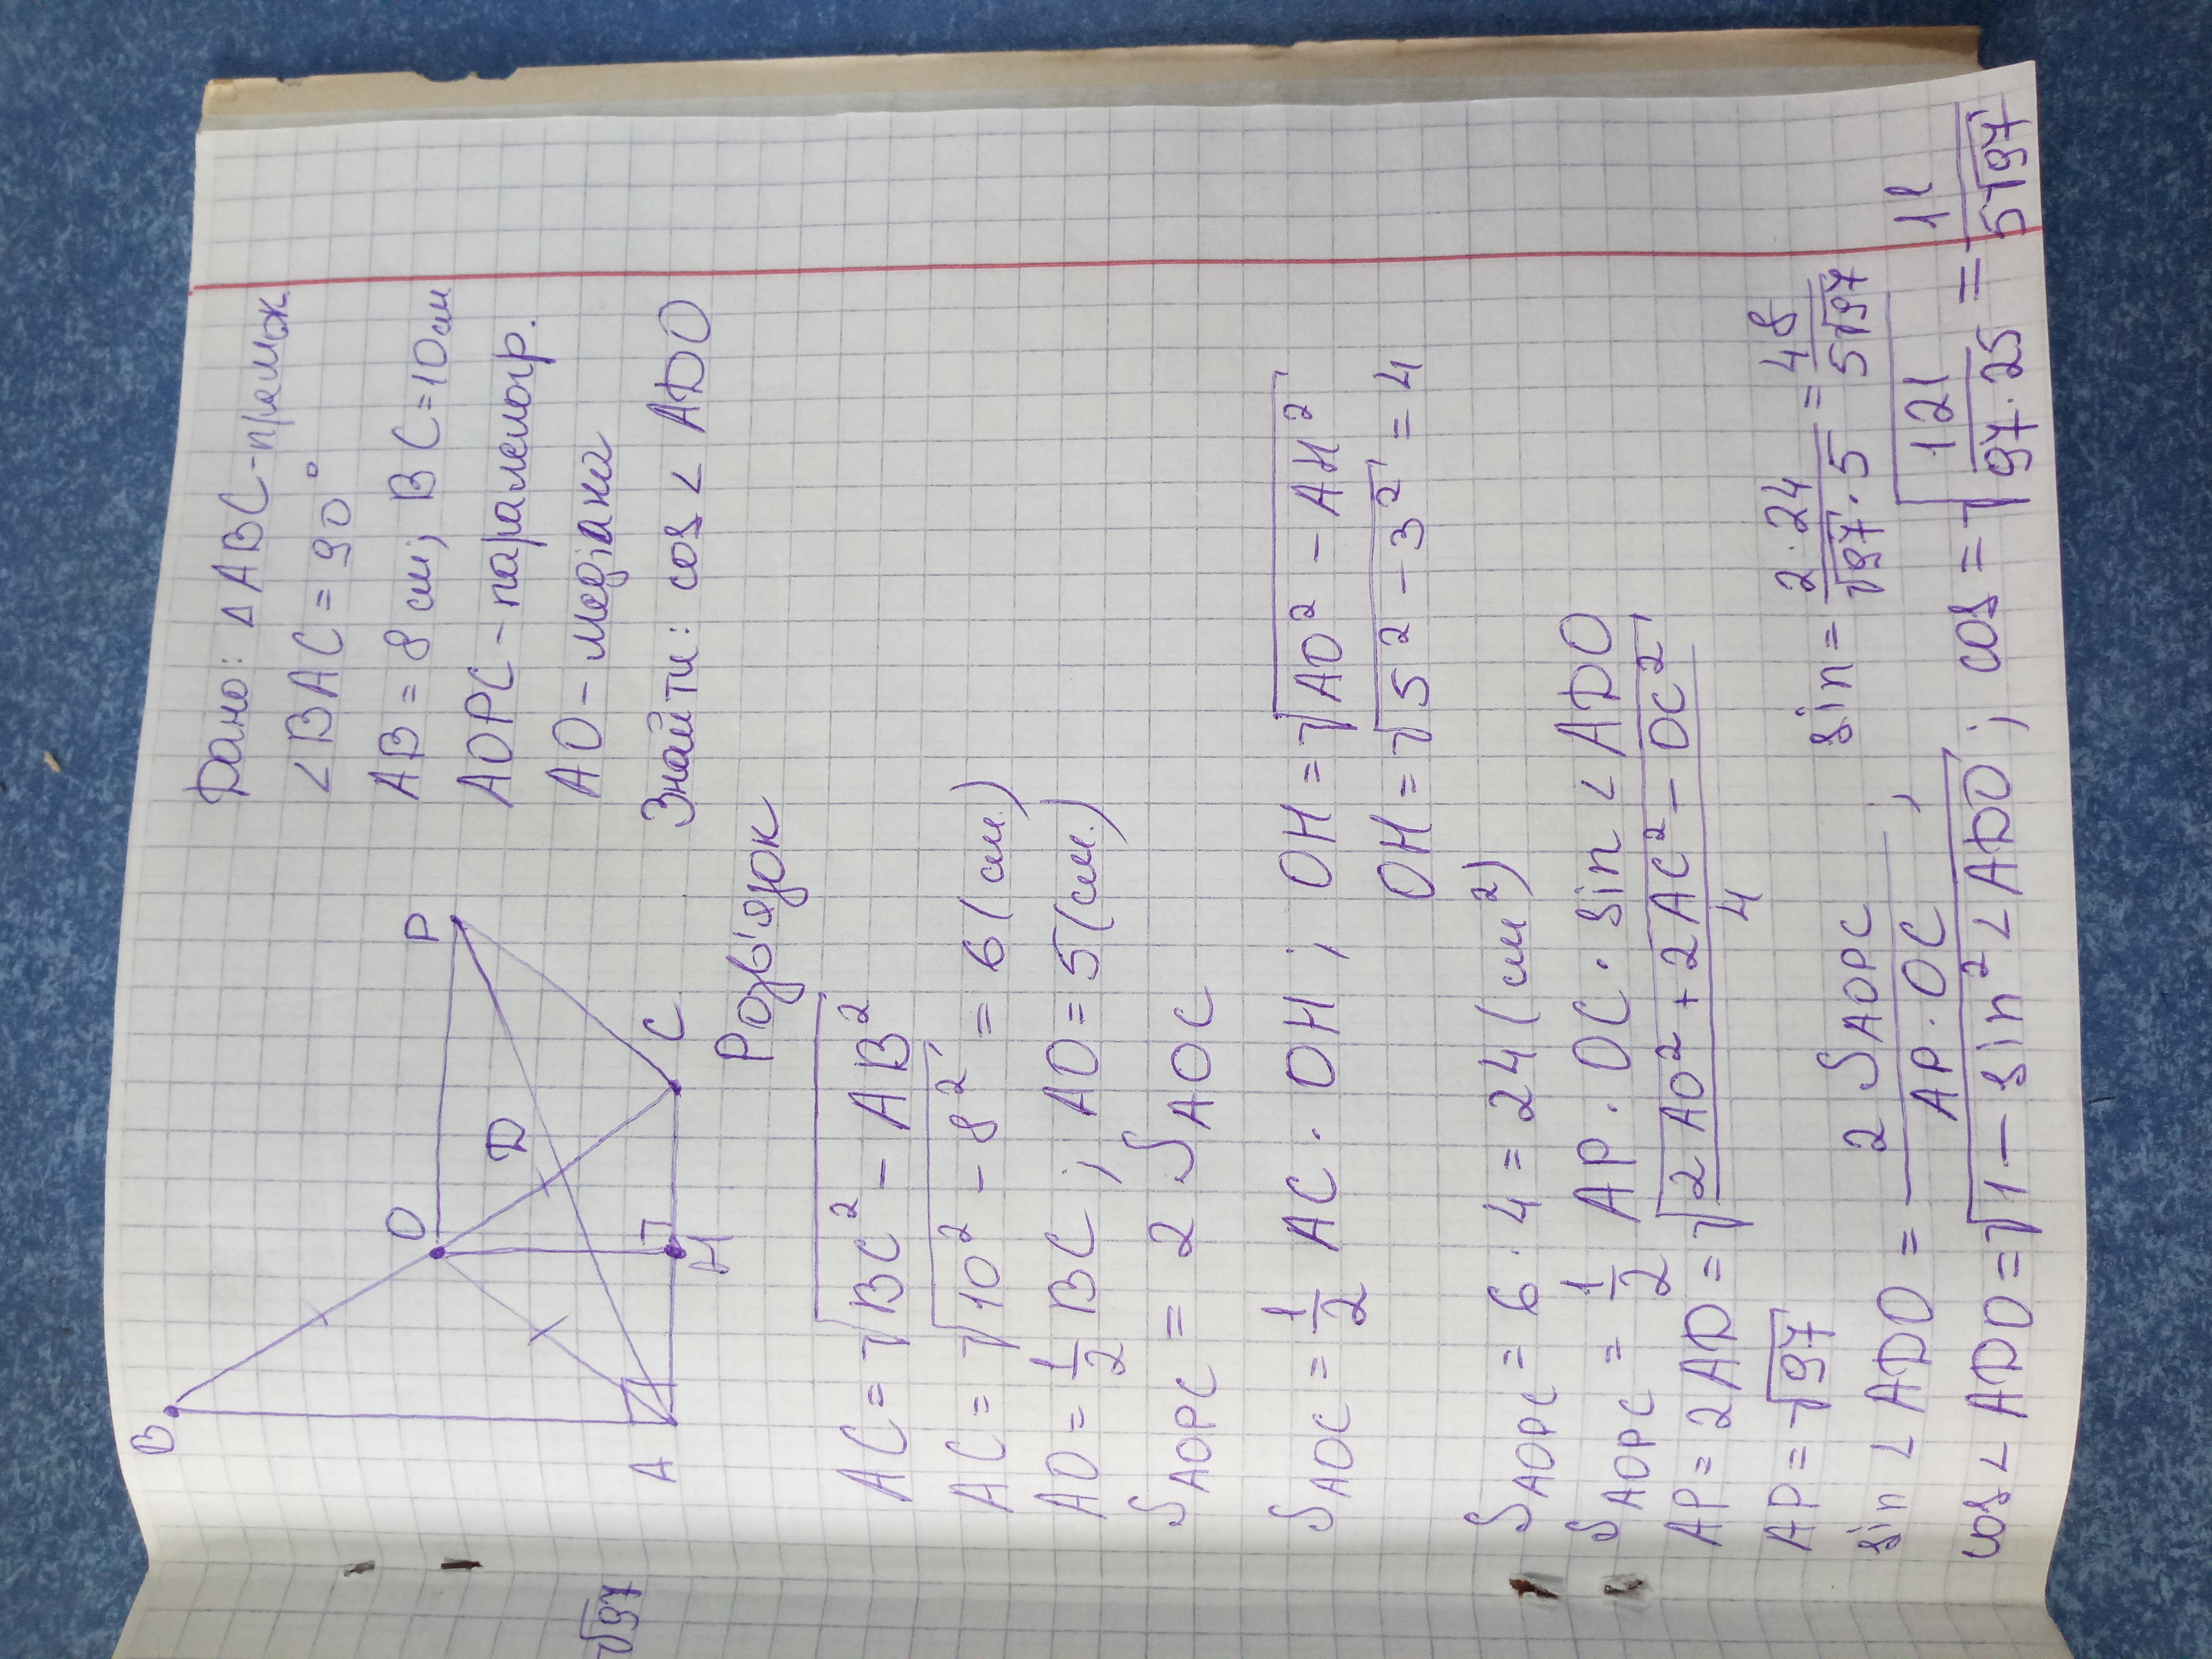 Дано: △ABC - прямок
∠BAC = 90°
AB = 8 см; BC = 10 см
AOPC - паралелогр.
AO - медіана
Знайти: cos ∠ ADO
B
O
P
D
A
H
C
Розв'язок
AC = √(BC² - AB²)
AC = √(10² - 8²) = 6 (см.)
AO = 1/2 BC; AO = 5 (см.)
S_AOPC = 2 S_AOC
S_AOC = 1/2 AC · OH; OH = √(AO² - AH²)
OH = √(5² - 3²) = 4
S_AOPC = 6 · 4 = 24 (см²)
S_AOPC = 1/2 AP · OC · sin ∠ ADO
AP = 2AD = √(2AO² + 2AC² - OC²)/4
AP = √97
sin ∠ ADO = 2 S_AOPC / AP · OC; sin = 2·24/√97·5 = 48/5√97
cos ∠ ADO = √(1 - sin² ∠ ADO); cos = √(121/97·25) = 11/5√97
√97